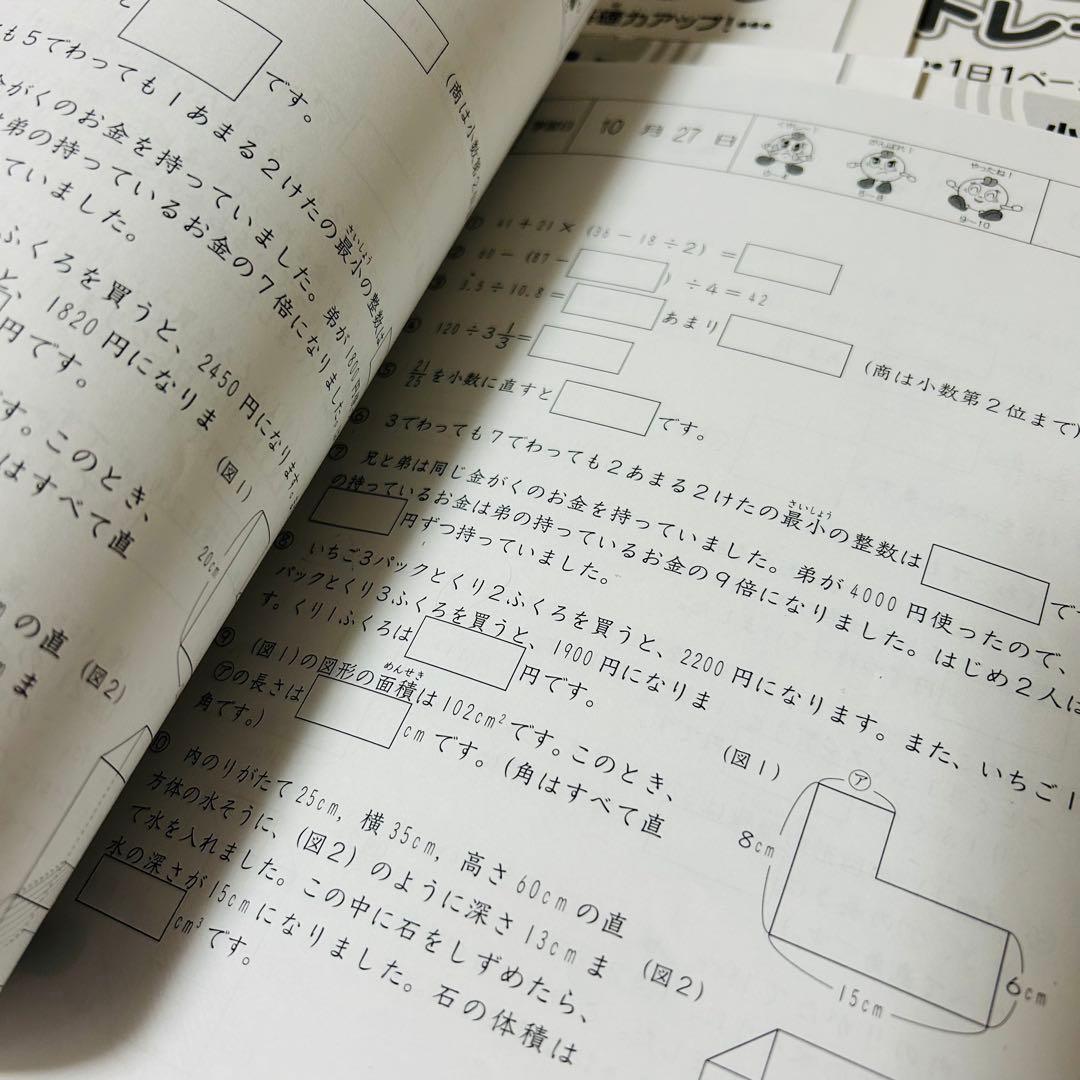 です。
(商は小数第
も5でわっても1あまる2けたの最小の整数は
さいしょう
がくのお金を持っていました。弟が1800円
は弟の持っているお金の7倍になりました。
ていました。
ふくろを買うと、2450円になります。
と、1820円になりま
円です。
す。このとき、
はすべて直
(図1)
20cm
の直
ま
(図2)
力アップ!・・・
トレ
・・1日1ペー
学習日
10月27日
がんばれ!
やったね!
6〜8
9〜10
① 41+21×(36-18÷2)=
② 60-(87-)÷4=42
③ 3.5÷10.8= あまり (商は小数第2位まで)
④ 120÷3 1/3=
⑤ 21/25を小数に直すと です。
⑥ 3でわっても7でわっても2あまる2けたの最小の整数は で
さいしょう
⑦ 兄と弟は同じ金がくのお金を持っていました。弟が4000円使ったので、
の持っているお金は弟の持っているお金の9倍になりました。はじめ2人は
円ずつ持っていました。
⑧ いちご3パックとくり2ふくろを買うと、2200円になります。また、いちご1
パックとくり3ふくろを買うと、1900円になりま
す。くり1ふくろは 円です。
⑨ (図1)の図形の面積は102cm²です。このとき、
めんせき
㋐の長さは cmです。(角はすべて直
角です。)
⑩ 内のりがたて25cm,横35cm,高さ60cmの直
方体の水そうに、(図2)のように深さ13cmま
で水を入れました。この中に石をしずめたら、
水の深さが15cmになりました。石の体積は
cm³です。
(図1)
㋐
8cm
15cm
6cm
(図2)